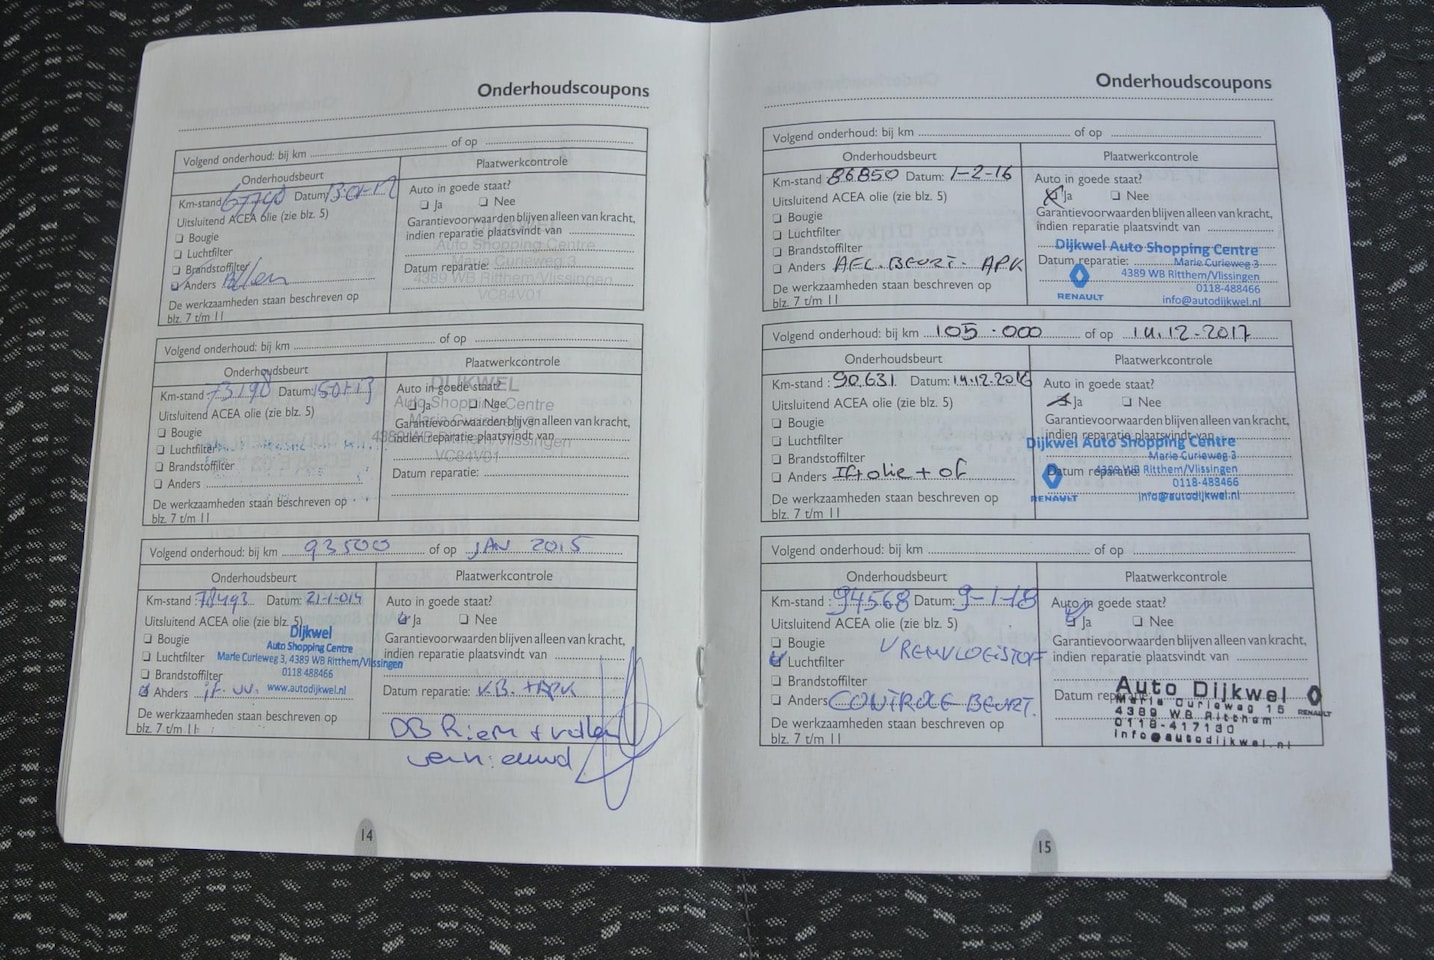 Onderhoudscoupons
Volgend onderhoud: bij km of op
Onderhoudsbeurt
Plaatwerkcontrole
Km-stand 67740 Datum
Auto in goede staat?
Ja Nee
Uitsluitend ACEA olie (zie blz. 5)
Garantievoorwaarden blijven alleen van kracht,
indien reparatie plaatsvindt van
Bougie
Luchtfilter
Auto Shopping Centre
Marie Curieweg 3
4389 WB Ritthem/Vlissingen
VC84V01
Brandstoffilter
Datum reparatie:
Anders
De werkzaamheden staan beschreven op
blz. 7 t/m 11
Volgend onderhoud: bij km of op
Onderhoudsbeurt
Plaatwerkcontrole
Km-stand 73198 Datum: 15-01-13
Auto in goede staat?
Ja Nee
Uitsluitend ACEA olie (zie blz. 5)
Garantievoorwaarden blijven alleen van kracht,
indien reparatie plaatsvindt van
DIJKWEL
Auto Shopping Centre
4389 WB Ritthem/Vlissingen
VC84V01
Bougie
Luchtfilter
Brandstoffilter
Datum reparatie:
Anders
De werkzaamheden staan beschreven op
blz. 7 t/m 11
Volgend onderhoud: bij km 93500 of op JAN 2015
Onderhoudsbeurt
Plaatwerkcontrole
Km-stand : 78493 Datum: 21-1-014
Auto in goede staat?
Ja Nee
Uitsluitend ACEA olie (zie blz. 5)
Garantievoorwaarden blijven alleen van kracht,
indien reparatie plaatsvindt van
Bougie
Luchtfilter
Dijkwel
Auto Shopping Centre
Marie Curieweg 3, 4389 WB Ritthem/Vlissingen
0118 488466
www.autodijkwel.nl
Brandstoffilter
Anders
Datum reparatie: K.B. + APK
De werkzaamheden staan beschreven op
blz. 7 t/m 11
DB Riem + rollen
vernieuwd
14
Onderhoudscoupons
Volgend onderhoud: bij km of op
Onderhoudsbeurt
Plaatwerkcontrole
Km-stand 86850 Datum: 1-2-16
Auto in goede staat?
Ja Nee
Uitsluitend ACEA olie (zie blz. 5)
Garantievoorwaarden blijven alleen van kracht,
indien reparatie plaatsvindt van
Bougie
Luchtfilter
Brandstoffilter
Anders AFL. BEURT - APK
Datum reparatie:
Dijkwel Auto Shopping Centre
Marie Curieweg 3
4389 WB Ritthem/Vlissingen
0118-488466
info@autodijkwel.nl
RENAULT
De werkzaamheden staan beschreven op
blz. 7 t/m 11
Volgend onderhoud: bij km 105.000 of op 14.12.2017
Onderhoudsbeurt
Plaatwerkcontrole
Km-stand : 90.631 Datum: 14.12.2016
Auto in goede staat?
Ja Nee
Uitsluitend ACEA olie (zie blz. 5)
Garantievoorwaarden blijven alleen van kracht,
indien reparatie plaatsvindt van
Bougie
Luchtfilter
Brandstoffilter
Anders If+olie + of
Datum reparatie:
Dijkwel Auto Shopping Centre
Marie Curieweg 3
4389 WB Ritthem/Vlissingen
0118-488466
info@autodijkwel.nl
RENAULT
De werkzaamheden staan beschreven op
blz. 7 t/m 11
Volgend onderhoud: bij km of op
Onderhoudsbeurt
Plaatwerkcontrole
Km-stand : 94568 Datum: 9-1-18
Auto in goede staat?
Ja Nee
Uitsluitend ACEA olie (zie blz. 5)
Garantievoorwaarden blijven alleen van kracht,
indien reparatie plaatsvindt van
Bougie VREMVLOEISTOF
Luchtfilter
Brandstoffilter
Anders CONTROLE BEURT.
Datum reparatie:
Auto Dijkwel
Marie Curieweg 15
4389 WB Ritthem
0118-417130
info@autodijkwel.nl
RENAULT
De werkzaamheden staan beschreven op
blz. 7 t/m 11
15